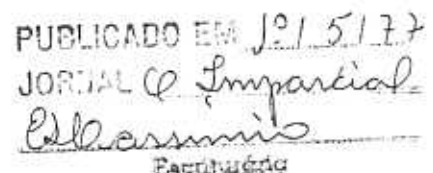 PUBLICADO EM 1º/5/77
JORNAL O Imparcial
Escriturário